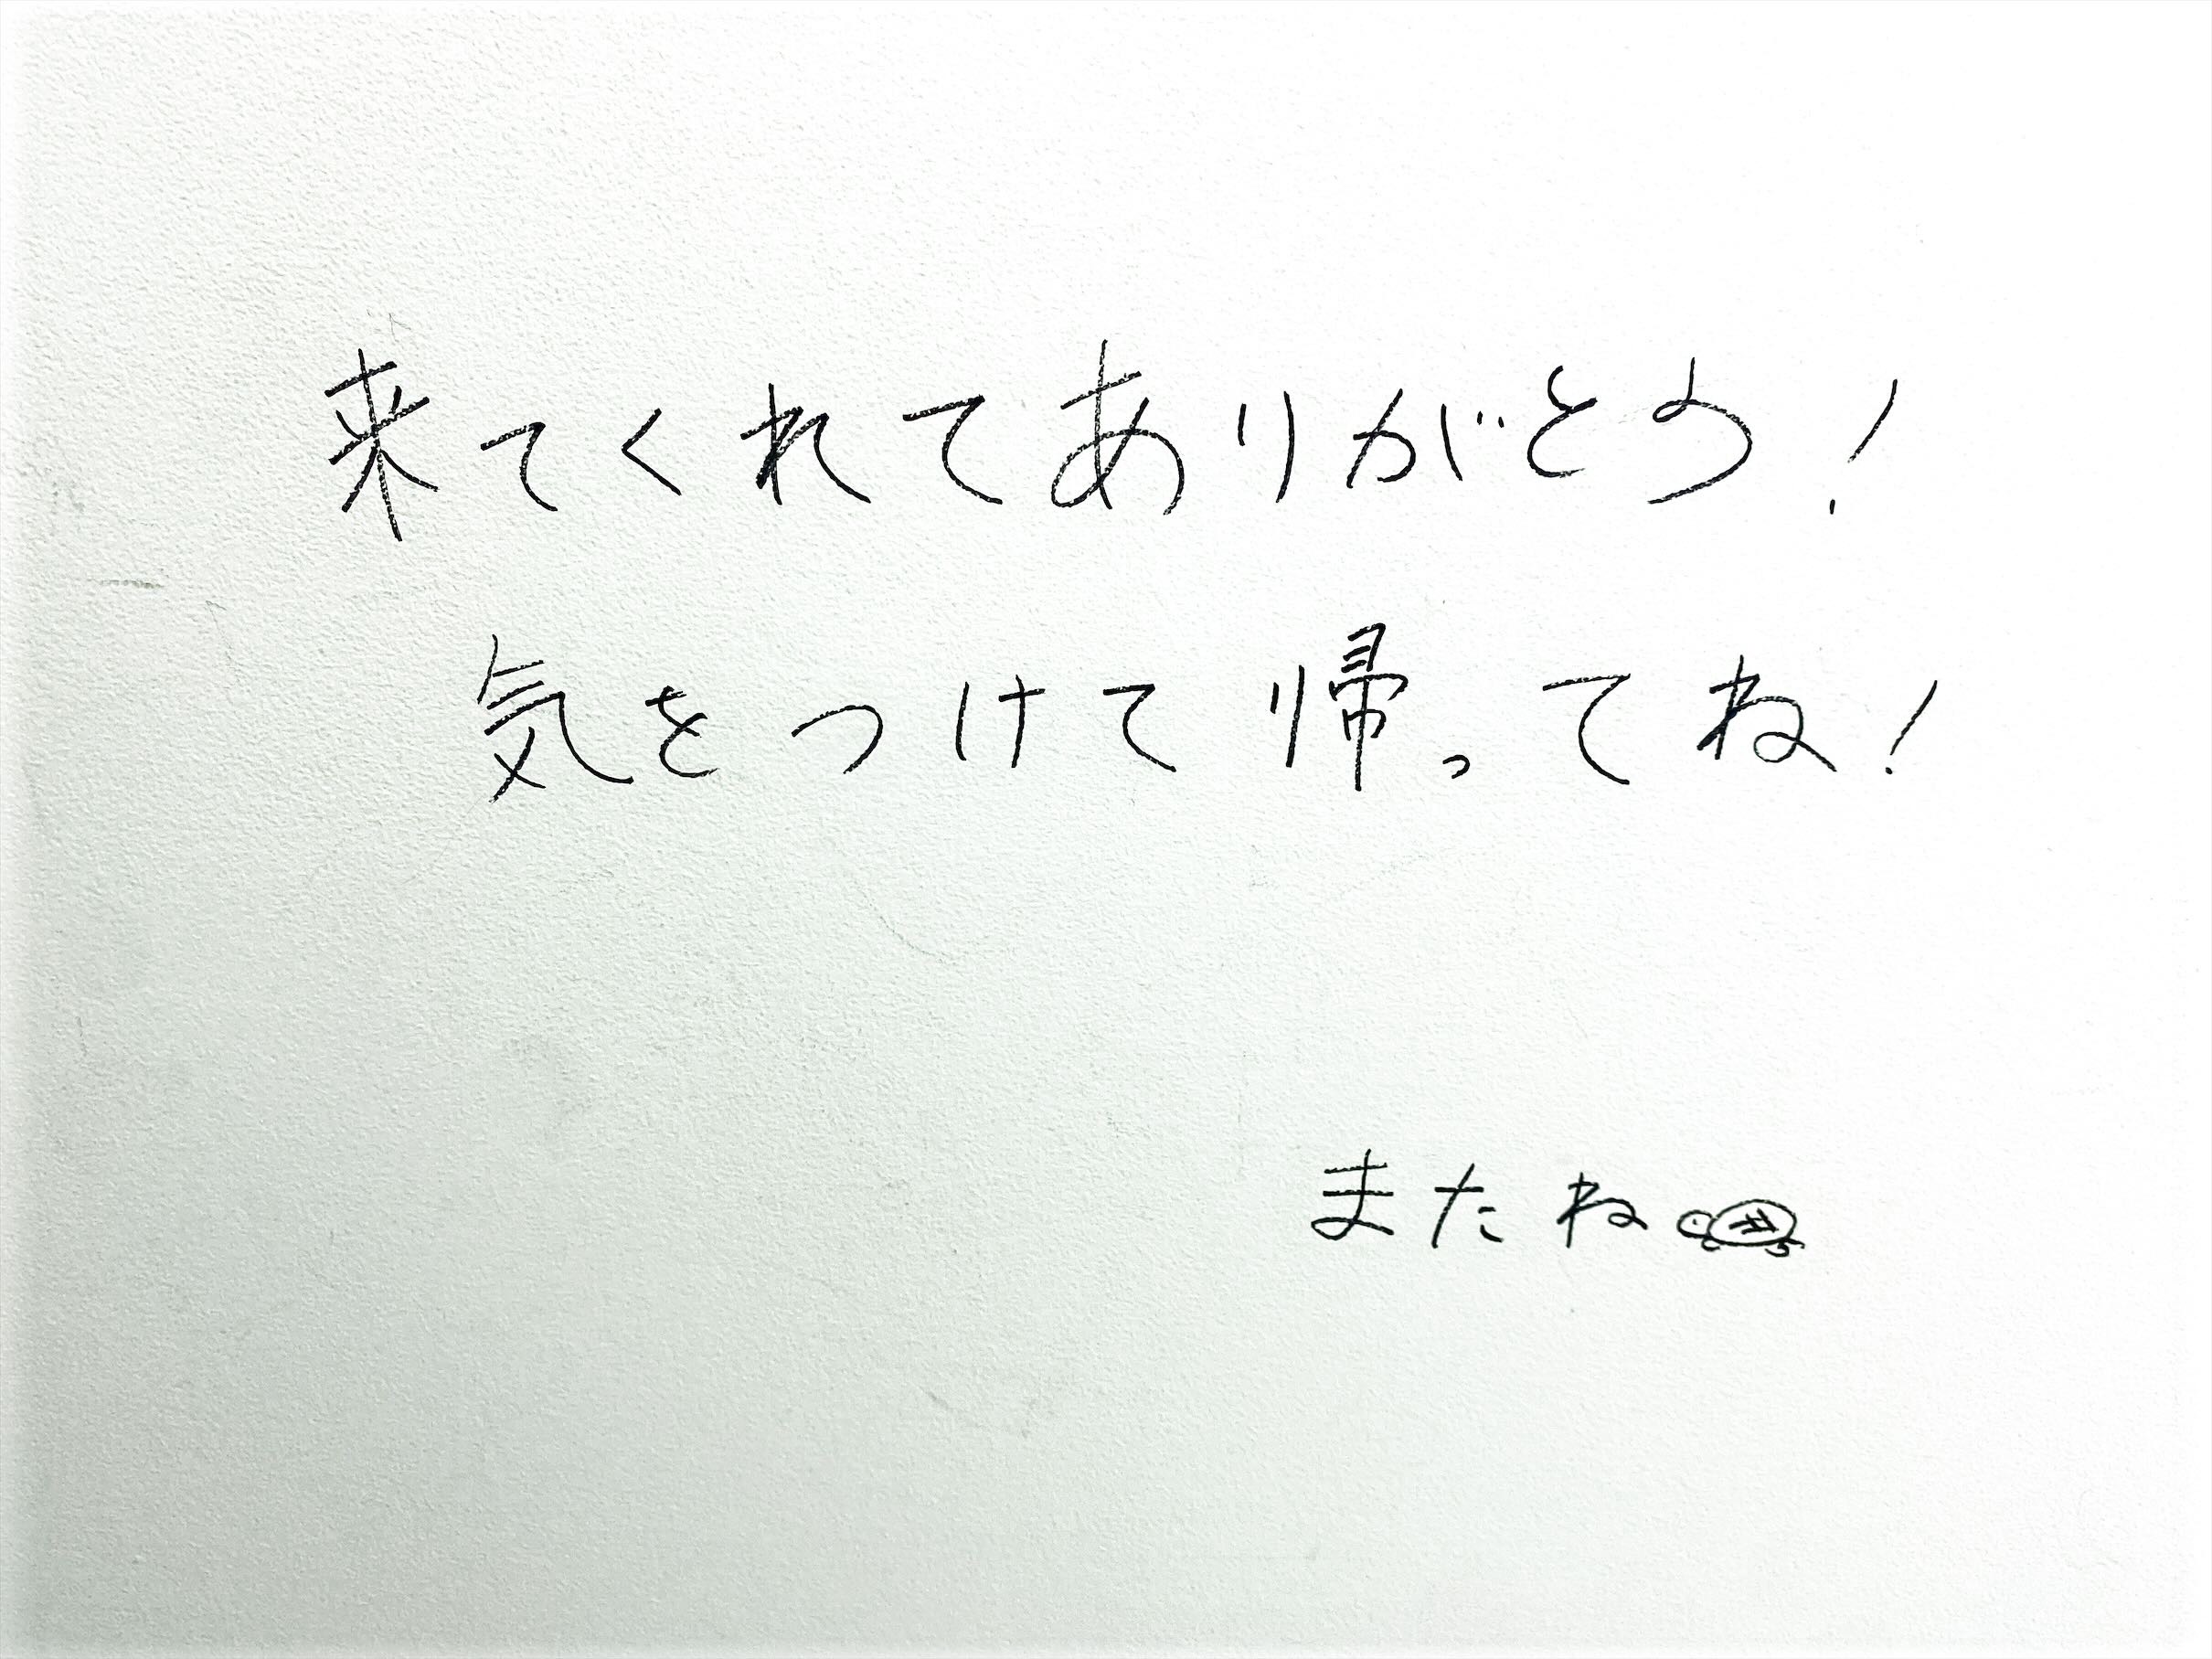 来てくれてありがとう!
気をつけて帰ってね!
またね